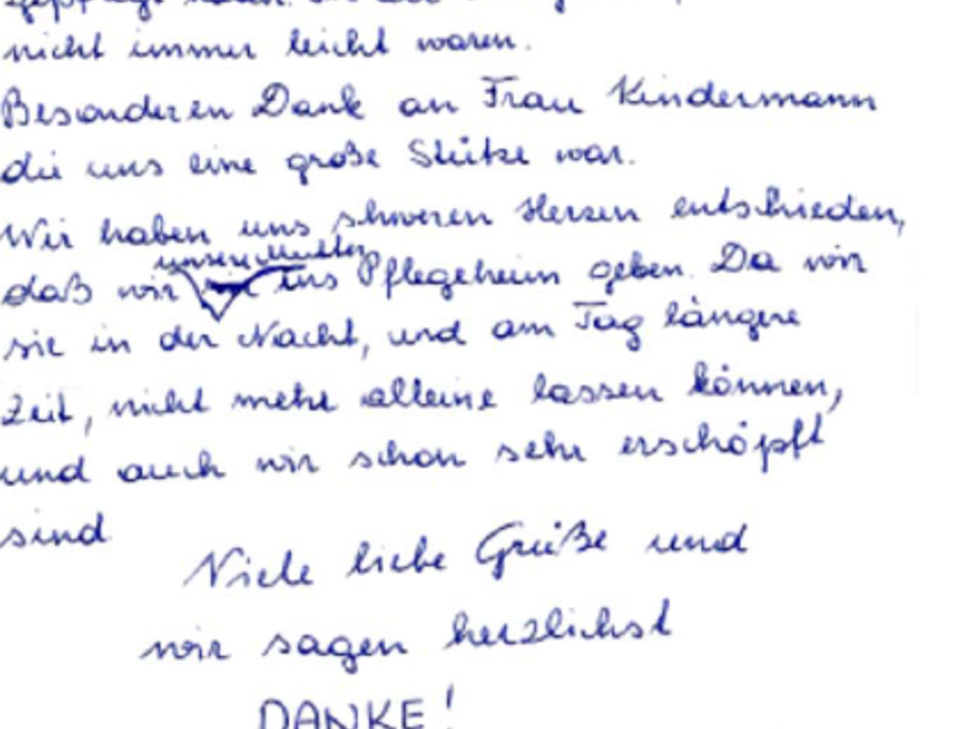 nicht immer leicht waren.
Besonderen Dank an Frau Kindermann
die uns eine große Stütze war.
Wir haben uns schweren Herzen entschieden,
unsere Mutter
daß wir ins Pflegeheim geben. Da wir
sie in der Nacht, und am Tag längere
Zeit, nicht mehr alleine lassen können,
und auch wir schon sehr erschöpft
sind
Viele liebe Grüße und
wir sagen herzlichst
DANKE!